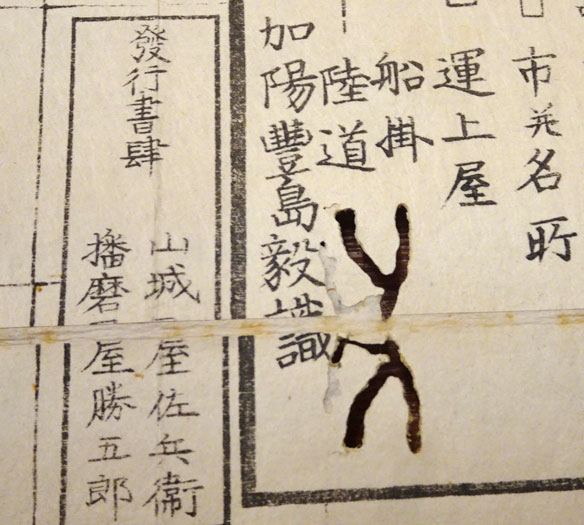 市並名所
運上屋
船掛
陸道
加陽豐島毅識
發行書肆
山城屋佐兵衛
播磨屋勝五郎